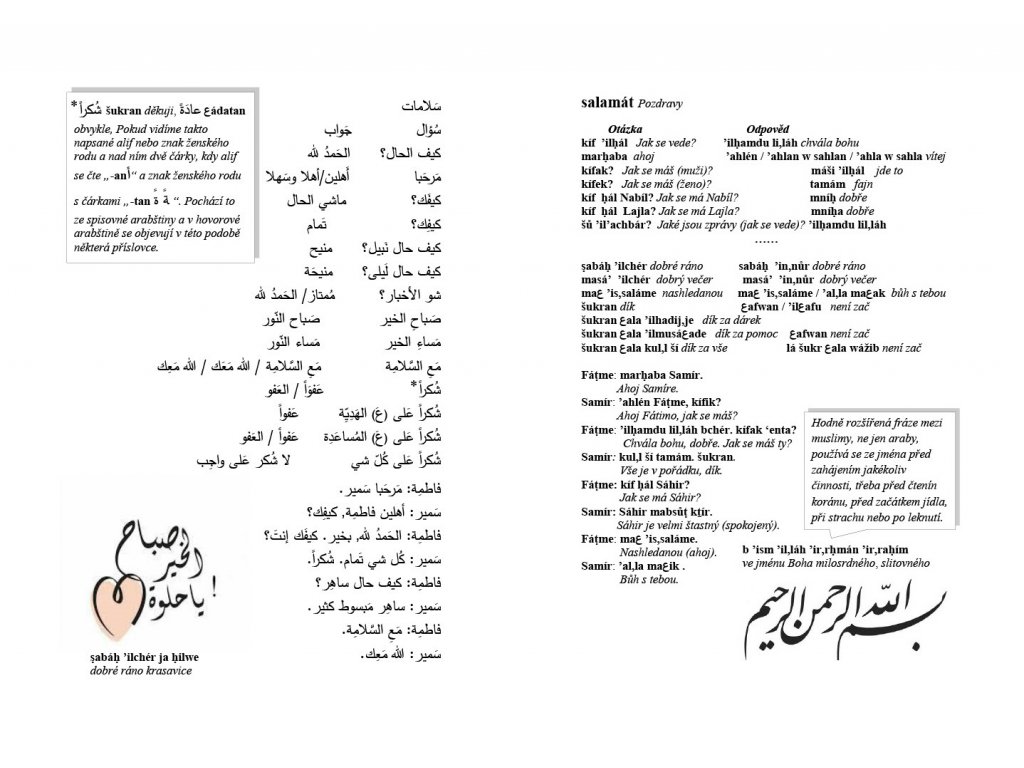 *شُكراً šukran děkuji, عادَةً عádatan
obvykle, Pokud vidíme takto
napsané alif nebo znak ženského
rodu a nad ním dvě čárky, kdy alif
se čte „-anأ“ a znak ženského rodu
s čárkami „-tan ةً ـَةً “. Pochází to
ze spisovné arabštiny a v hovorové
arabštině se objevují v této podobě
některá příslovce.
سَلامات
سُؤال جَواب
كيف الحال؟ الحَمدُ لله
مَرحَبا أهلين/أهلا وسَهلا
كيفَك؟ ماشي الحال
كيفِك؟ تَمام
كيف حال نَبيل؟ منيح
كيف حال لَيلى؟ منيحَة
شو الأخبار؟ مُمتاز/ الحَمدُ لله
صَباحِ الخير صَباح النّور
مَساءِ الخير مَساء النّور
مَعِ السَّلامِة مَعِ السَّلامِة / الله مَعَك / الله مَعِك
شُكراً* عَفوَاً / العَفو
شُكراً عَلى (عَ) الهَدِيِّة عَفواً
شُكراً عَلى (عَ) المُساعَدِة عَفواً / العَفو
شُكراً عَلى كُلّ شي لا شُكر عَلى واجِب
فاطمِة: مَرحَبا سَمير.
سَمير: أهلين فاطمِة, كيفِك؟
فاطمِة: الحَمدُ لله, بخير. كيفَك إنتَ؟
سَمير: كُل شي تَمام. شُكراً.
فاطمِة: كيف حال ساهِر؟
سَمير: ساهِر مَبسوط كثير.
فاطمِة: مَعِ السَّلامِة.
سَمير: الله مَعِك.
صباح
الخير
يا حلوة !
ṣabáḥ ’ilchér ja ḥilwe
dobré ráno krasavice
salamát Pozdravy
Otázka Odpověd
kíf ’ilḥál Jak se vede? ’ilḥamdu li,láh chvála bohu
marḥaba ahoj ’ahlén / ’ahlan w sahlan / ’ahla w sahla vítej
kífak? Jak se máš (muži)? máši ’ilḥál jde to
kífek? Jak se máš (ženo)? tamám fajn
kíf ḥál Nabíl? Jak se má Nabíl? mníḥ dobře
kíf ḥál Lajla? Jak se má Lajla? mníḥa dobře
šů ’il’achbár? Jaké jsou zprávy (jak se vede)? ’ilḥamdu lil,láh
……
ṣabáḥ ’ilchér dobré ráno ṣabáḥ ’in,nůr dobré ráno
masá’ ’ilchér dobrý večer masá’ ’in,nůr dobrý večer
maع ’is,saláme nashledanou maع ’is,saláme / ’al,la maعak bůh s tebou
šukran dík عafwan / ’ilعafu není zač
šukran عala ’ilhadij,je dík za dárek
šukran عala ’ilmusáعade dík za pomoc عafwan není zač
šukran عala kul,l ší dík za vše lá šukr عala wážib není zač
Fáṭme: marḥaba Samír.
Ahoj Samíre.
Samír: ’ahlén Fáṭme, kífik?
Ahoj Fátimo, jak se máš?
Fáṭme: ’ilḥamdu lil,láh bchér. kífak ‘enta?
Chvála bohu, dobře. Jak se máš ty?
Samír: kul,l ší tamám. šukran.
Vše je v pořádku, dík.
Fáṭme: kíf ḥál Sáhir?
Jak se má Sáhir?
Samír: Sáhir mabsůṭ kṯír.
Sáhir je velmi štastný (spokojený).
Fáṭme: maع ’is,saláme.
Nashledanou (ahoj).
Samír: ’al,la maعik .
Bůh s tebou.
Hodně rozšířená fráze mezi
muslimy, ne jen araby,
používá se ze jména před
zahájením jakékoliv
činnosti, třeba před čtenín
koránu, před začátkem jídla,
při strachu nebo po leknutí.
b ’ism ’il,láh ’ir,rḥmán ’ir,raḥím
ve jménu Boha milosrdného, slitovného
بسم الله الرحمن الرحيم